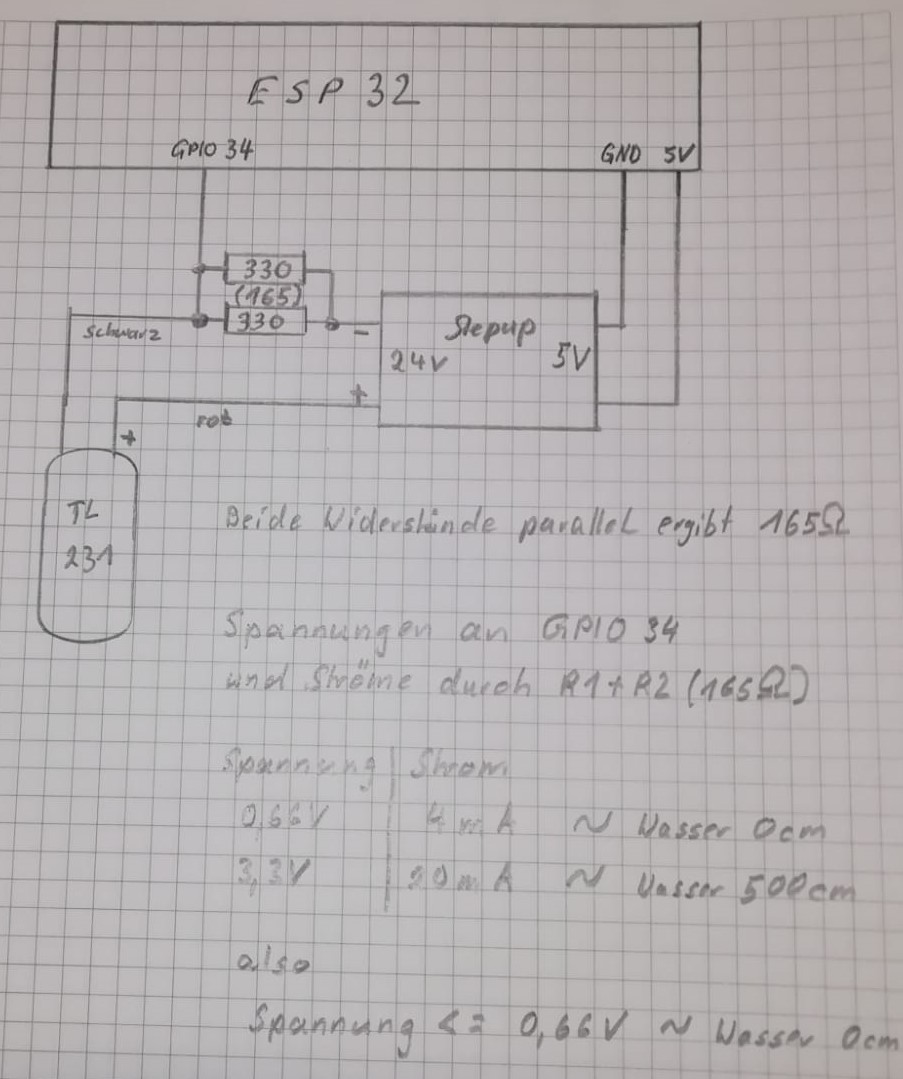 ESP 32
GPIO 34
GND 5V
330
(165)
330
schwarz
-
Stepup
24V
5V
+
rot
+
TL
231
Beide Widerstände parallel ergibt 165Ω
Spannungen an GPIO 34
und Ströme durch R1+R2 (165Ω)
Spannung | Strom
0,66V | 4mA ~ Wasser 0cm
3,3V | 20mA ~ Wasser 500cm
also
Spannung <= 0,66V ~ Wasser 0cm